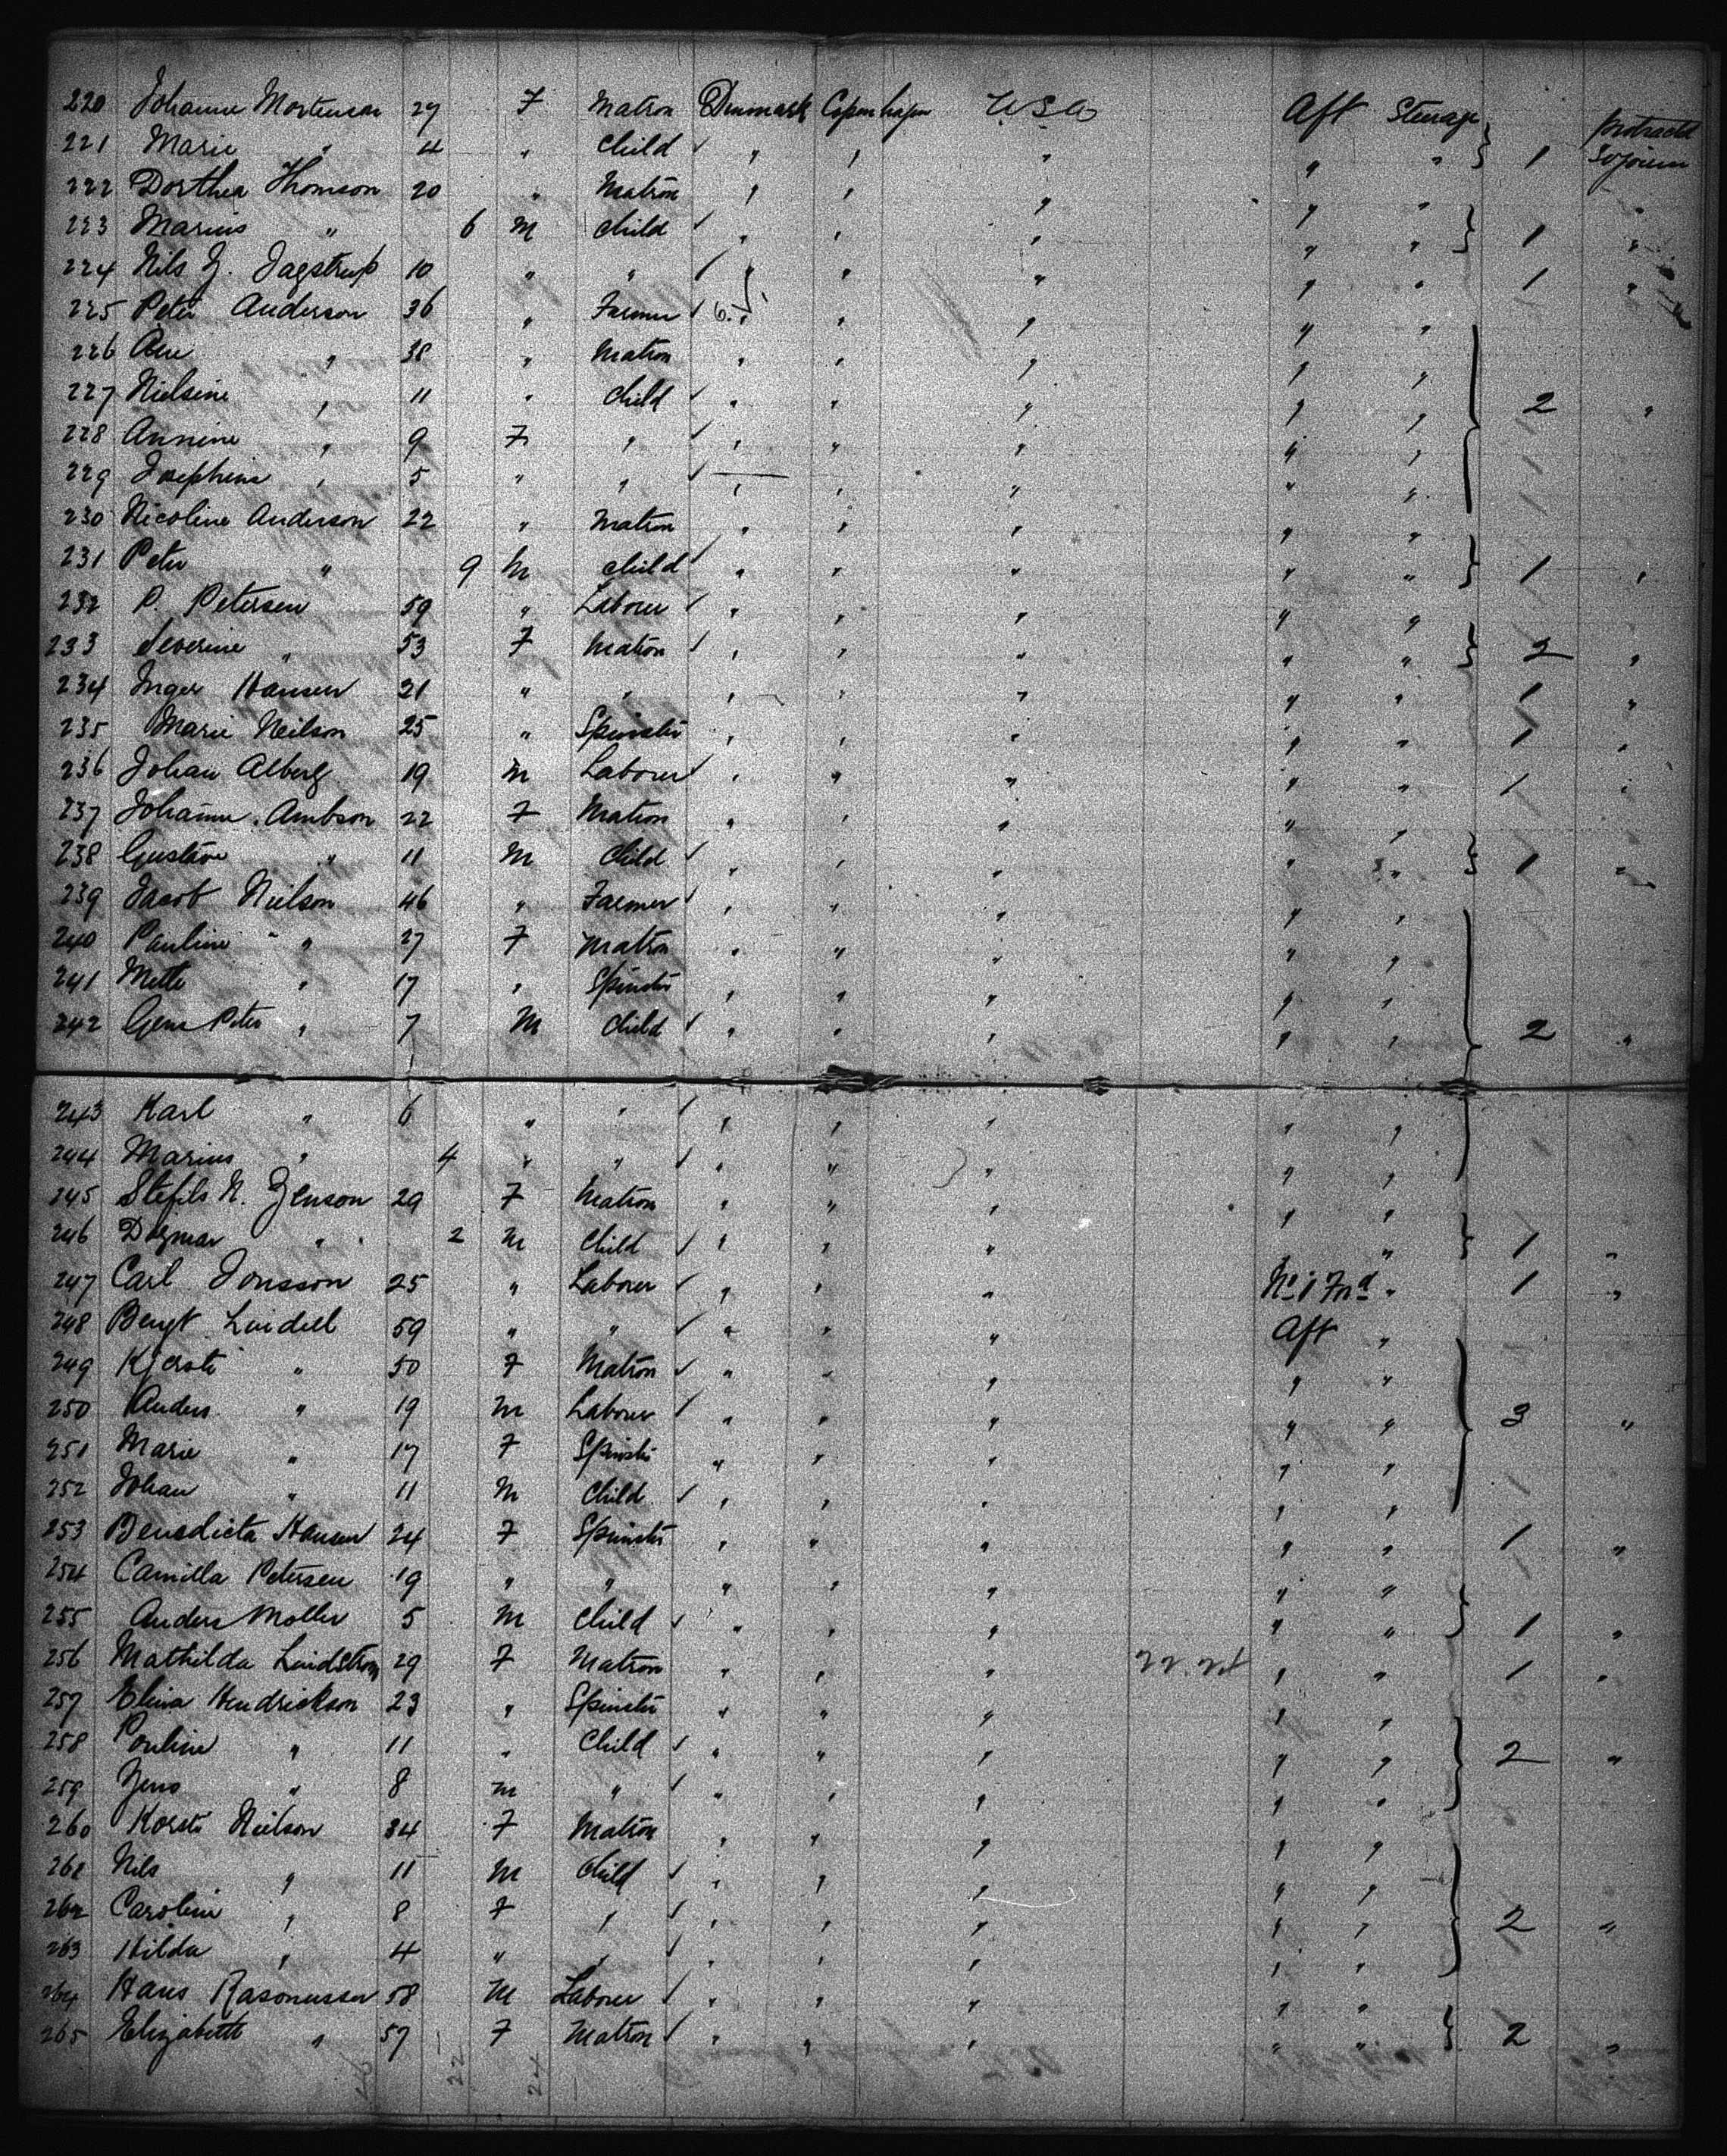 220 Johanne Mortensen 27 F Matron Denmark Copenhagen USA Aft Steerage protracted
221 Marie " 4 " Child " " " " " 1 Sojourn
222 Dorthea Thomson 20 " Matron " " " " " "
223 Marius " 6 M Child " " " " " 1 "
224 Nils J. Jagstrup 10 " " " " " " " 1 "
225 Peter Anderson 36 " Farmer " " " " "
226 Ane " 38 " Matron " " " " "
227 Nielsine " 11 " Child " " " " " 2 "
228 Annine " 9 F " " " " " "
229 Josephine " 5 " " " " " " "
230 Nicoline Anderson 22 " Matron " " " " "
231 Peter " 9 M Child " " " " " 1 "
232 P. Petersen 59 " Laborer " " " " "
233 Severine " 53 F Matron " " " " " 2 "
234 Inger Hansen 21 " " " " " " " 1 "
235 Marie Neilson 25 " Spinster " " " " " 1 "
236 Johan Alberg 19 M Laborer " " " " " 1 "
237 Johanne Ambson 22 F Matron " " " " "
238 Gustave " 11 M Child " " " " " 1 "
239 Jacob Nielson 46 " Farmer " " " " "
240 Pauline " 27 F Matron " " " " "
241 Mette " 17 " Spinster " " " " "
242 Gens Peter " 7 M Child " " " " " 2 "
243 Karl " 6 " " " " " " "
244 Marius " 4 " " " " " " "
245 N. Jenson 29 F Matron " " " " "
246 Dagmar " 2 M Child " " " " 1 "
247 Carl Jonsson 25 " Laborer " " " No 1 Frd " 1 "
248 Bengt Lindell 59 " " " " " Aft "
249 Kjersti " 50 F Matron " " " " "
250 Anders " 19 M Laborer " " " " " 3 "
251 Marie " 17 F Spinster " " " " "
252 Johan " 11 M Child " " " " "
253 Benedicta Hansen 24 F Spinster " " " " " 1 "
254 Camilla Petersen 19 " " " " " " "
255 Anders Moller 5 M Child " " " " " 1 "
256 Mathilda Lindstrom 29 F Matron " " " " " 1 "
257 Elina Hendrickson 23 " Spinster " " " " "
258 Pouline " 11 " Child " " " " " 2 "
259 Jens " 8 M " " " " " "
260 Korsti Nielson 34 F Matron " " " " "
261 Nils " 11 M Child " " " " "
262 Caroline " 8 F " " " " " " 2 "
263 Hilda " 4 " " " " " " "
264 Hans Rasmussen 58 M Laborer " " " " "
265 Elizabeth " 57 F Matron " " " " " 2 "
22 24